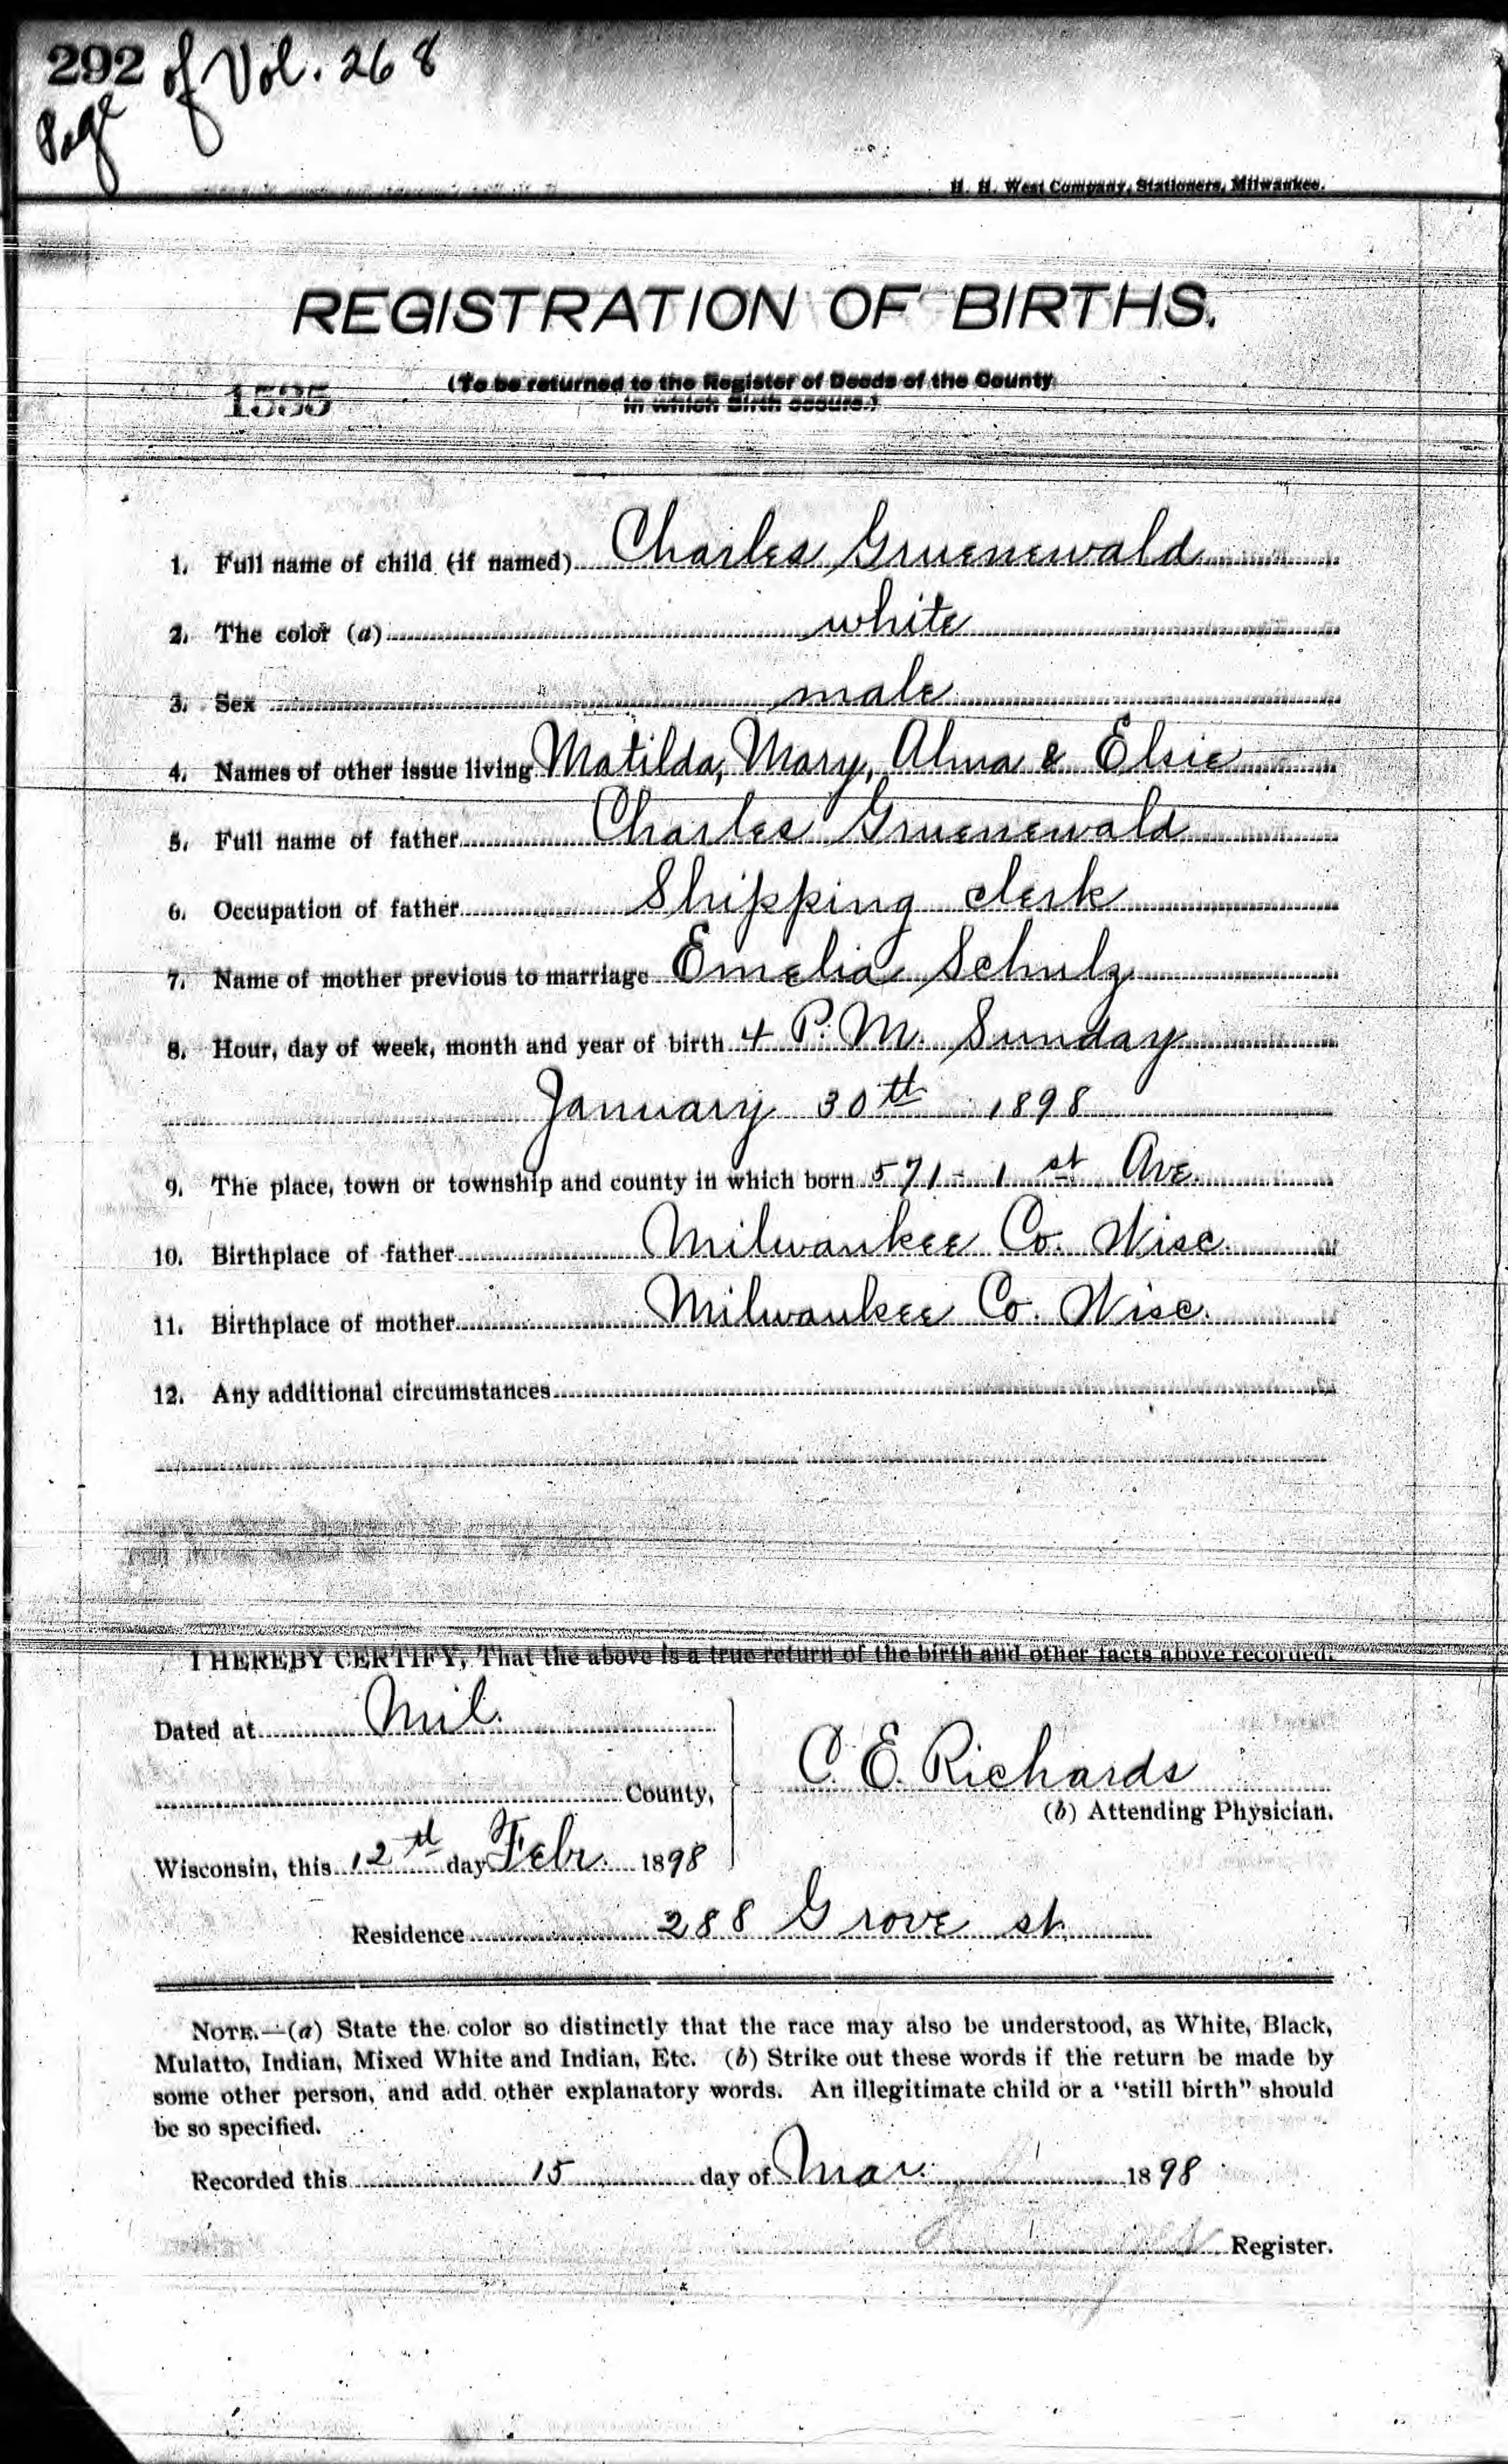 292 of Vol. 268
Page
H. H. West Company, Stationers, Milwaukee.
REGISTRATION OF BIRTHS.
1535
(To be returned to the Register of Deeds of the County
in which Birth occurs.)
1. Full name of child (if named) Charles Gruenewald
2. The color (a) white
3. Sex male
4. Names of other issue living Matilda, Mary, Alma & Elsie
5. Full name of father Charles Gruenewald
6. Occupation of father Shipping clerk
7. Name of mother previous to marriage Emelia Schulz
8. Hour, day of week, month and year of birth 4 P. M. Sunday
January 30th 1898
9. The place, town or township and county in which born 571 - 1st Ave.
10. Birthplace of father Milwaukee Co. Wisc.
11. Birthplace of mother Milwaukee Co. Wisc.
12. Any additional circumstances
I HEREBY CERTIFY, That the above is a true return of the birth and other facts above recorded.
Dated at Mil.
County,
C. E. Richards
(b) Attending Physician.
Wisconsin, this 12th day Febr. 1898
Residence 288 Grove st.
NOTE.—(a) State the color so distinctly that the race may also be understood, as White, Black,
Mulatto, Indian, Mixed White and Indian, Etc. (b) Strike out these words if the return be made by
some other person, and add other explanatory words. An illegitimate child or a "still birth" should
be so specified.
Recorded this 15 day of Mar. 1898
Register.